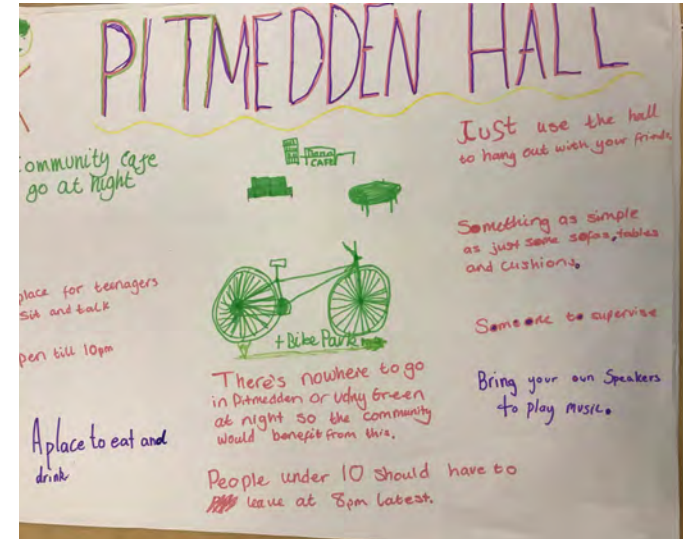 PITMEDDEN HALL
ommunity cafe
go at night
place for teenagers
sit and talk
pen till 10pm
A place to eat and
drink
CAFE
+ Bike Park
There's nowhere to go
in Pitmedden or Udny Green
at night so the community
would benefit from this.
People under 10 should have to
leave at 8pm latest.
Just use the hall
to hang out with your friends
Something as simple
as just some sofas, tables
and cushions.
Someone to supervise
Bring your own Speakers
to play music.